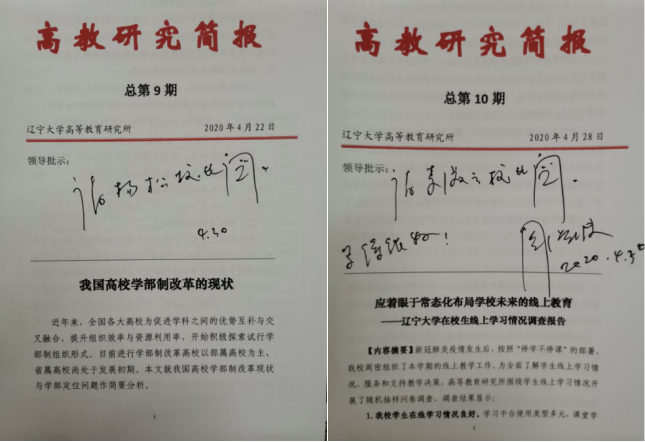 高教研究简报
总第 9 期
辽宁大学高等教育研究所 2020 年 4 月 22 日
领导批示：
请杨松校长阅.
4.30
我国高校学部制改革的现状
近年来，全国各大高校为促进学科之间的优势互补与交
叉融合、提升组织效率与资源利用率，开始积极探索试行学
部制组织形式。目前进行学部制改革高校以部属高校为主，
省属高校尚处于发展初期。本文就我国高校学部制改革现状
与学部定位问题作简要分析。
1
高教研究简报
总第 10 期
辽宁大学高等教育研究所 2020 年 4 月 28 日
领导批示：
阅.
2020.4.30
应着眼于常态化布局学校未来的线上教育
——辽宁大学在校生线上学习情况调查报告
【内容摘要】新冠肺炎疫情发生后，按照“停学不停课”的部署，
我校周密组织了本学期的线上教学工作，为全面了解学生线上学习情
况，服务和支持教学决策，高等教育研究所围绕学生线上学习情况开
展了随机抽样问卷调查，调查结果显示：
1. 我校学生在线学习情况良好。学习平台使用类型多元，课堂学
1